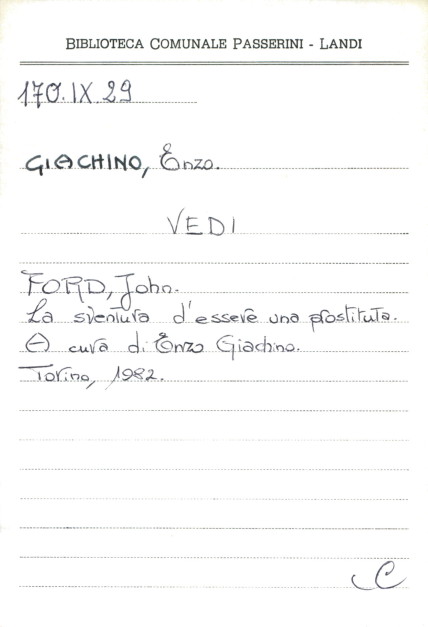 BIBLIOTECA COMUNALE PASSERINI - LANDI
170.IX.29
GIACHINO, Enzo.
VEDI
FORD, John.
La sventura d'essere una prostituta.
A cura di Enzo Giachino.
Torino, 1982.
C